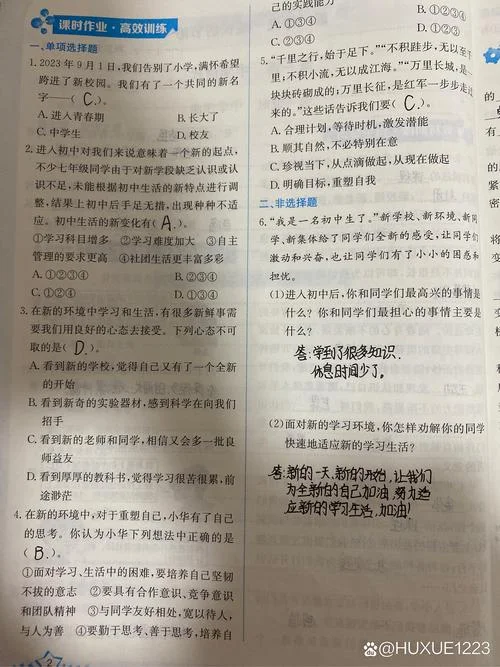 课时作业·高效训练
一、单项选择题
1.2023年9月1日,我们告别了小学,满怀希望
跨进了新校园。我们有了一个共同的新名
字——( C. )。
A.进入青春期 B.长大了
C.中学生 D.校友
2.进入初中对我们来说意味着一个新的起点,
不少七年级同学由于对新学段缺乏认识或认
识不足,未能根据初中生活的新特点进行调
整,结果上初中后手足无措,出现种种不适
应。初中生活的新变化有( A. )。
①学习科目增多 ②学习难度加大 ③自主
管理的要求更高 ④社团生活更丰富多彩
A.①②③④ B.②③④
C.①②④ D.①③④
3.在新的环境中学习和生活,有很多新鲜事需
要我们用良好的心态去接受。下列心态不可
取的是( D. )。
A.看到新的学校,觉得自己又有了一个全新
的开始
B.看到新奇的实验器材,感到科学在向我们
招手
C.看到新的老师和同学,相信又会多一批良
师益友
D.看到厚厚的教科书,觉得学习很苦很累,前
途渺茫
4.在新的环境中,对于重塑自己,小华有了自己
的思考。你认为小华下列想法中正确的是
( B. )。
①面对学习、生活中的困难,要培养自己坚韧
不拔的意志 ②要具有合作意识、竞争意识
和团队精神 ③与同学友好相处,宽以待人,
与人为善 ④要勤于思考、善于思考,培养自
2
己的实践能力
A.①②③④ B.①②③
C.②③④ D.①③④
5.“千里之行,始于足下。”“不积跬步,无以至千
里;不积小流,无以成江海。”“万里长城,是一
块块砖砌成的;万里长征,是红军一步步走过
来的。”这些话告诉我们要( C. )。
A.合理计划,等待时机,激发潜能
B.顺其自然,不必特别在意
C.珍视当下,从点滴做起,从现在做起
D.明确目标,重塑自我
二、非选择题
6.“我是一名初中生了。”新学校、新环境、新同
学、新集体给了同学们全新的感受,让同学们
激动和兴奋,也让同学们有了小小的困惑和
担忧。
(1)进入初中后,你和同学们最高兴的事情是
什么?你和同学们最担心的事情主要是
什么?
答:学到了很多知识.
休息时间少了。
(2)面对新的学习环境,你怎样劝解你的同学
快速地适应新的学习生活?
答:新的一天、新的开始,让我们
为全新的自己加油,努力适
应新的学习生活,加油!
@HUXUE1223